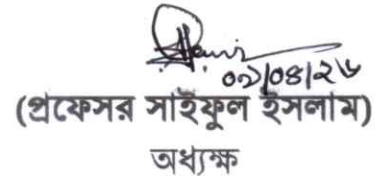 ০৯/০৪/২৬
(প্রফেসর সাইফুল ইসলাম)
অধ্যক্ষ